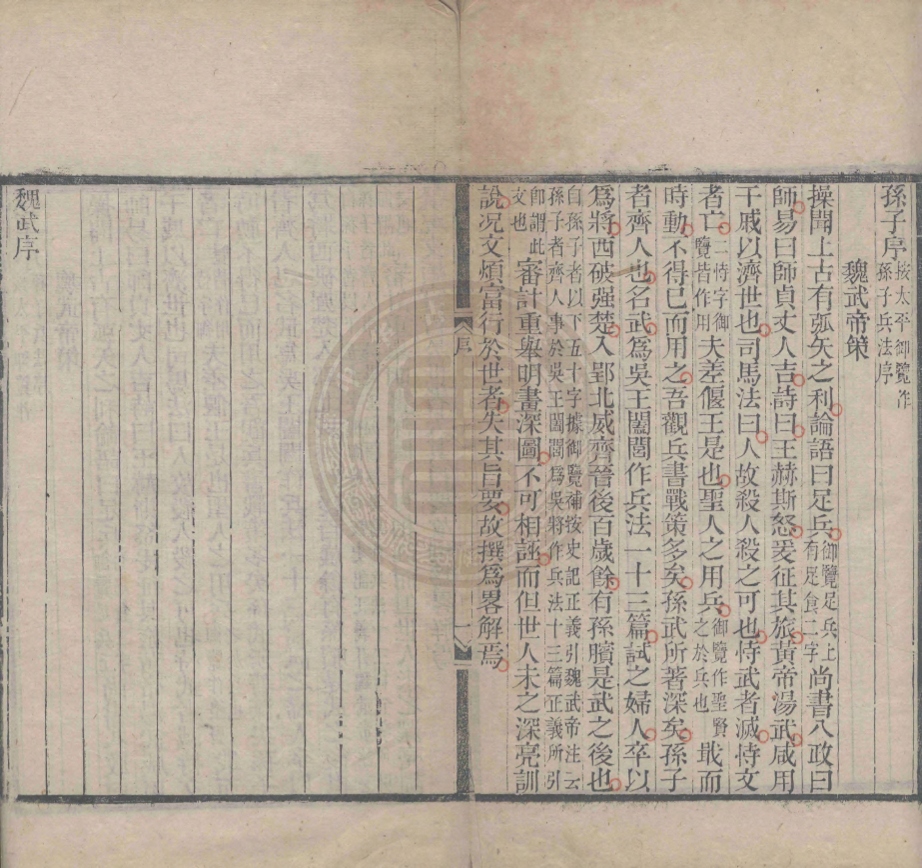 孫子序按太平御覽作孫子兵法序
魏武帝䇿
操聞上古有弧矢之利論語曰足兵御覽足兵上有足食二字尚書八政曰
師易曰師貞丈人吉詩曰王赫斯怒爰征其旅黃帝湯武咸用
干戚以濟世也司馬法曰人故殺人殺之可也恃武者滅恃文
者亡二恃字御覽皆作用夫差偃王是也聖人之用兵御覽作聖賢之於兵也戢而
時動不得已而用之吾觀兵書戰策多矣孫武所著深矣孫子
者齊人也名武爲吳王闔閭作兵法一十三篇試之婦人卒以
爲將西破强楚入郢北威齊晉後百歲餘有孫臏是武之後也
自孫子者以下五十字據御覽補按史記正義引魏武帝注云孫子者齊人事於吳王闔閭爲吳將作兵法十三篇正義所引
卽謂此文也審計重舉明畫深圖不可相誣而但世人未之深亮訓
說况文煩富行於世者失其旨要故撰爲畧解焉
序
一
魏武序